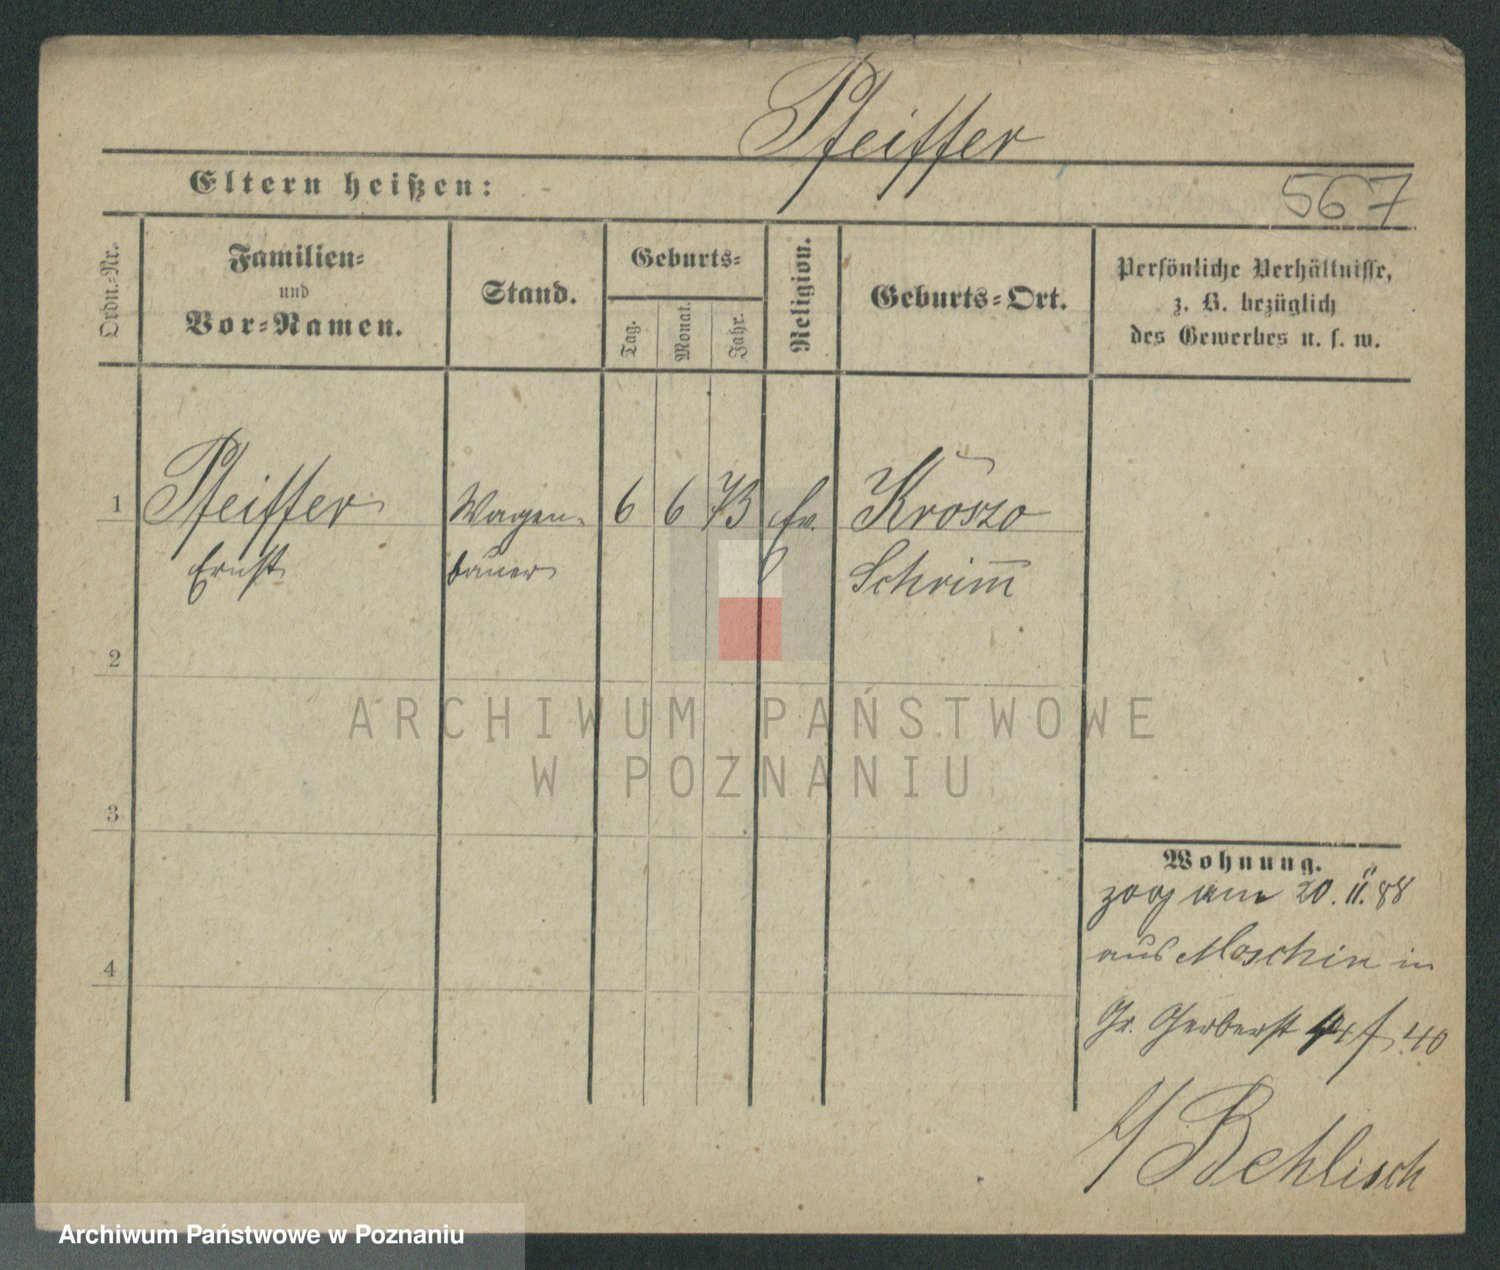 Pfeiffer
Eltern heißen:
567
Ordn.-Nr.
Familien-
und
Vor-Namen.
Stand.
Geburts-
Tag.
Monat.
Jahr.
Religion.
Geburts-Ort.
Persönliche Verhältnisse,
z. B. bezüglich
des Gewerbes u. s. w.
1 Pfeiffer Wagen- 6 6 73 ev. Kröszo
Ernst bauer Schrim̅
2
3
4
ARCHIWUM PAŃSTWOWE
W POZNANIU
Wohnung.
zog am 20. 11. 88
aus Moschin in
Gr. Gerberst 40
b/ Behlisch
Archiwum Państwowe w Poznaniu